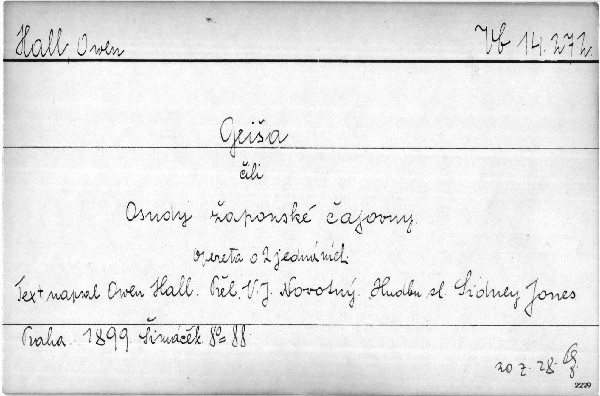 Hall, Owen Vb 14.272.
Geiša
čili
Osudy žaponské čajovny.
Opereta o 2 jednáních.
Text napsal Owen Hall. Přel. V. J. Novotný. Hudbu sl. Sidney Jones
Praha. 1899. Šimáček. 8º 88
20 Z. 28.
2229